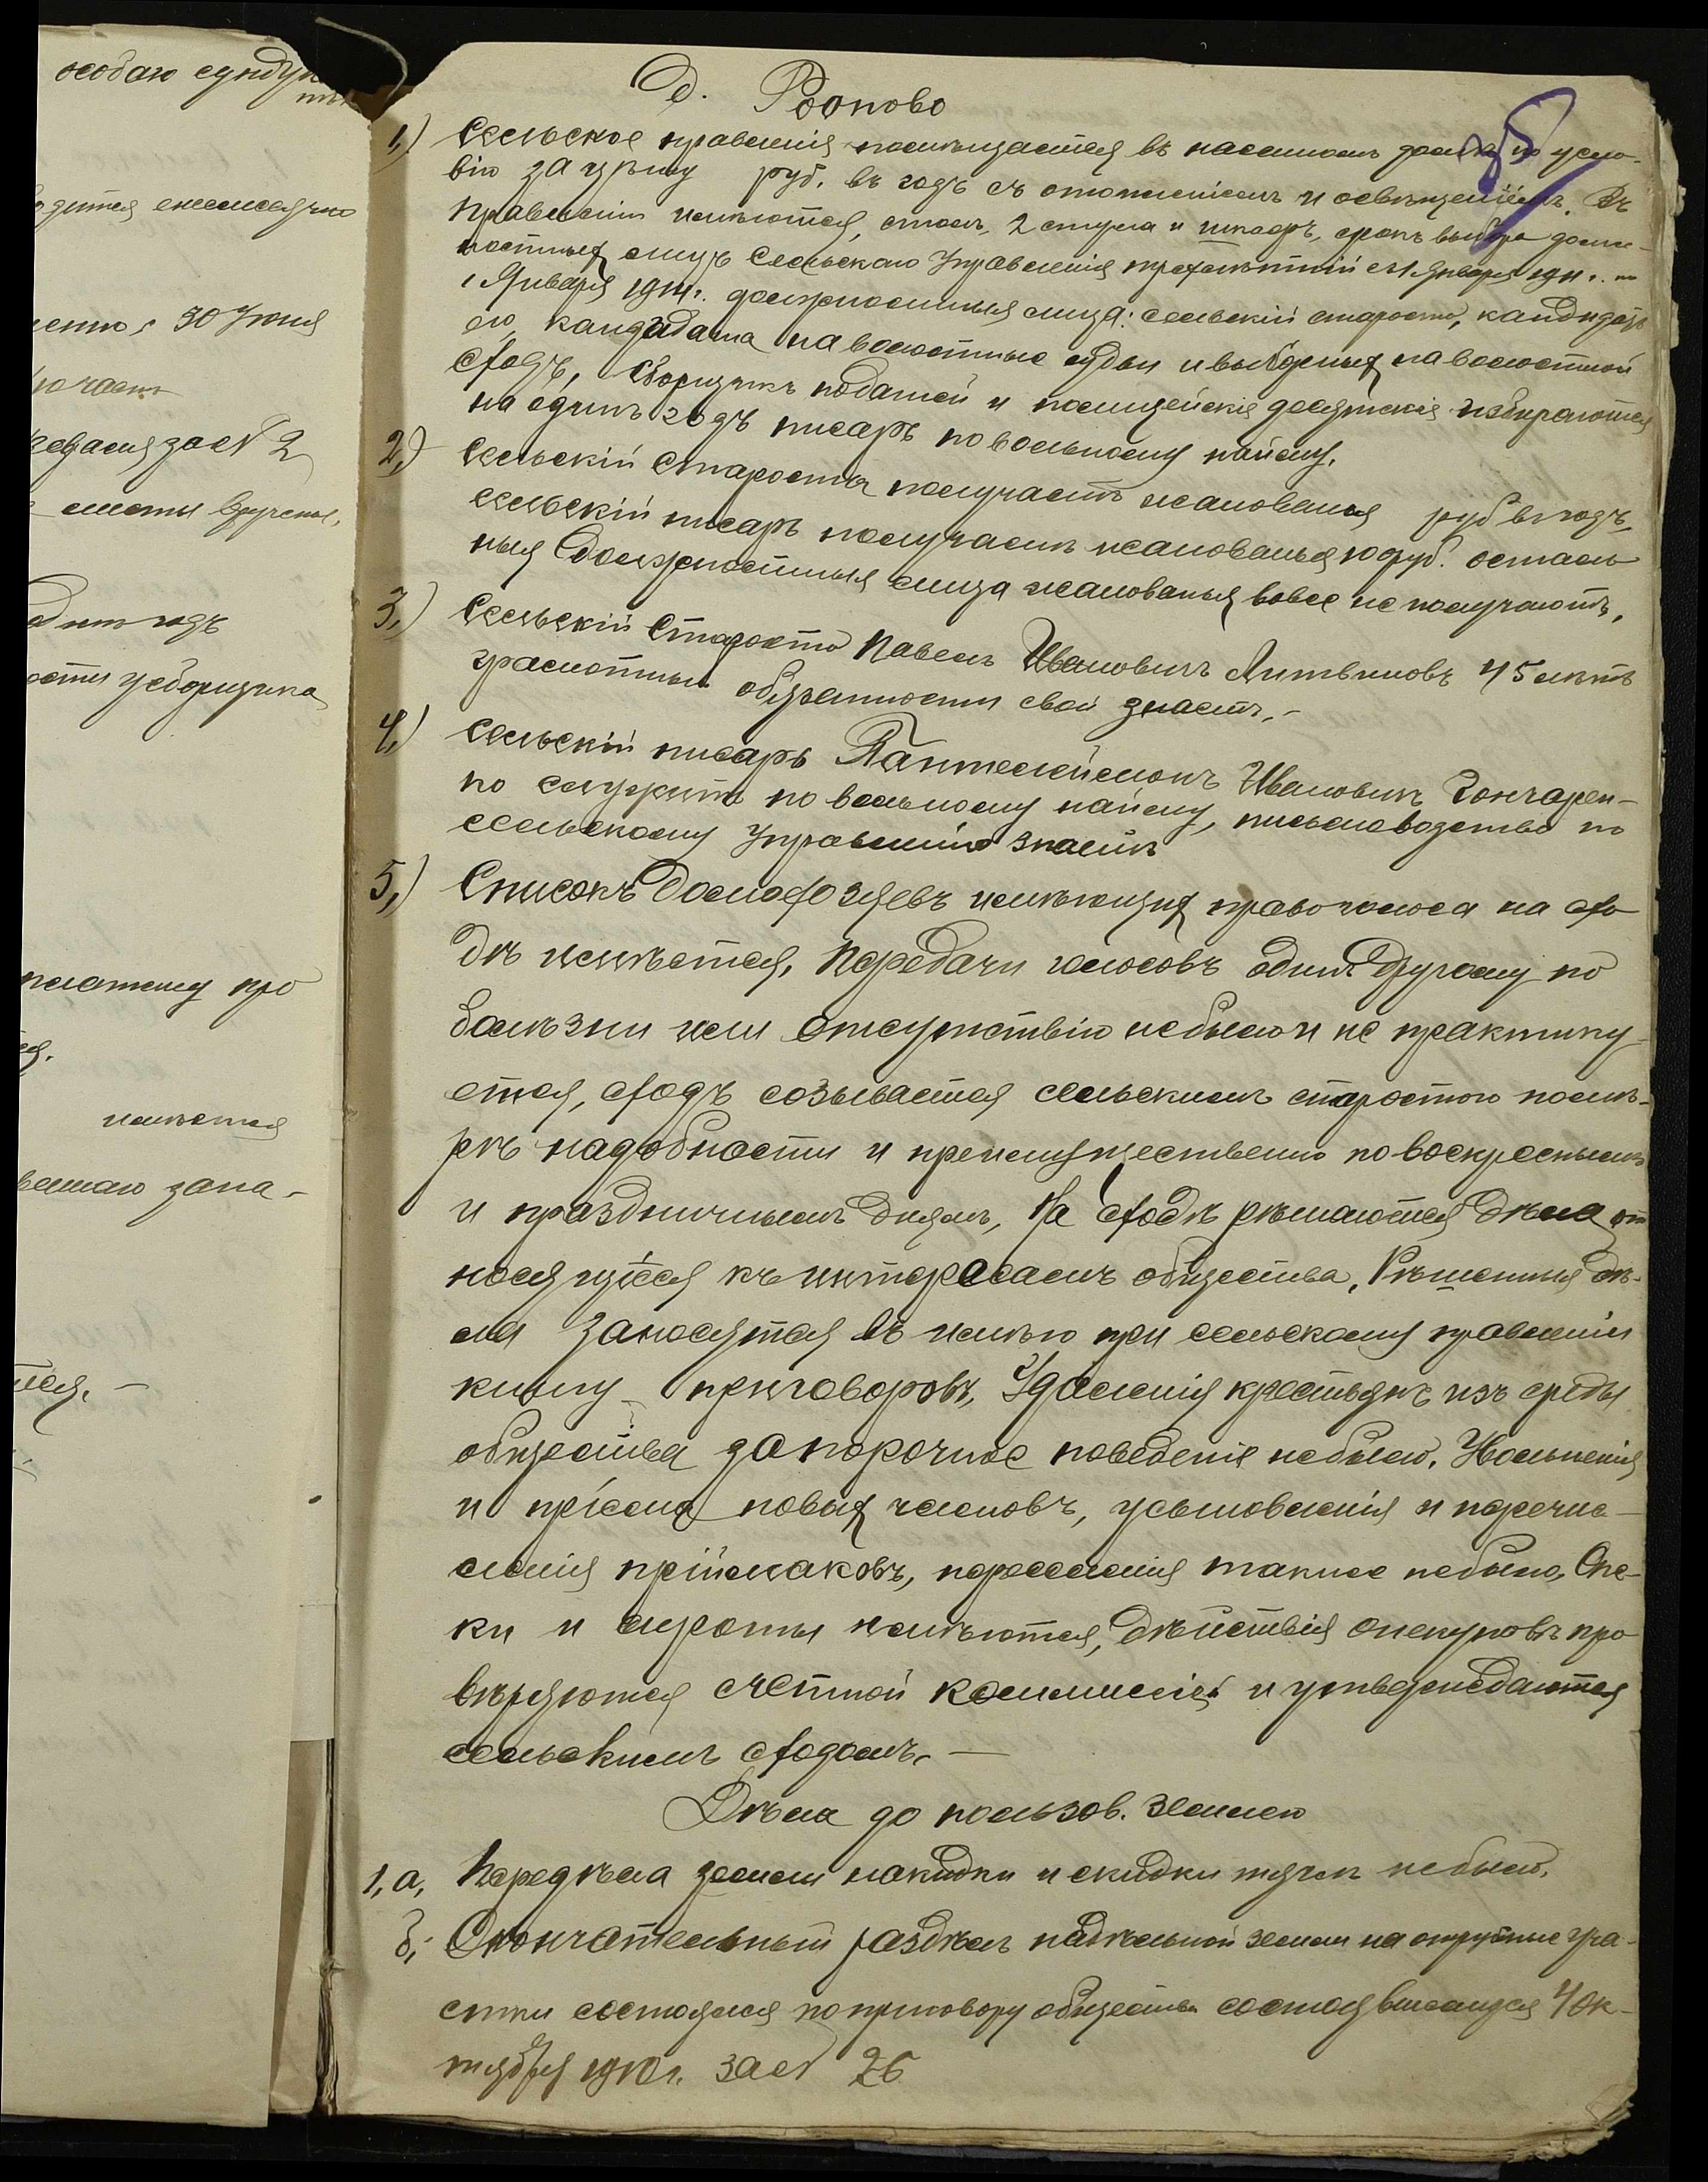 особаго сунду
одится ежемесячно
30 Июня
ю часть
за № 2
сметы вручены,
годъ
ости у сборщика
платежу про
имѣется
запа-
тся, —
Д. Рооново
1,) Сельское правленія помѣщается въ наемномъ домѣ по усло-
вію за цѣну руб. въ годъ съ отопленіемъ и освѣщеніемъ. Въ
Правленіи имѣются, столъ, 2 стула и шкафъ, срокъ выбора долж-
ностныхъ лицъ Сельскаго Управленія трехлѣтній съ 1 Января 1911 г. по
1 Января 1914 г. должностныя лица: сельскій староста, кандидатъ
его, кандидата на волостные судьи и выборныхъ на волостной
сходъ, Сборщикъ податей и полицейскія десятскія избираются
на одинъ годъ писарь по вольному найму.
2,) Сельскій Староста получаетъ жалованья руб въ годъ,
сельскій писарь получаетъ жалованья 60 руб. осталь
ныя Должностныя лица жалованья вовсе не получаютъ,
3,) Сельскій Староста Павелъ Ивановичъ Литвиновъ 45 лѣтъ
грамотный обязанности свои знаетъ, —
4,) Сельскій писарь Пантелеймонъ Ивановичъ Гончарен-
ко служитъ по вольному найму, письмоводство по
сельскому Управленію знаетъ
5,) Списокъ Домохозяевъ имѣющихъ право голоса на схо
дѣ имѣется, Передачи голосовъ одинъ другому по
болѣзни или отсутствію не было и не практику-
ется, сходъ созывается сельскимъ старостою по мѣ-
рѣ надобности и преимущественно по воскреснымъ
и праздничнымъ днямъ, На сходѣ рѣшаются дѣла от
носящіеся къ интересамъ общества, Рѣшенныя дѣ-
ла заносятся въ имѣю при сельскому правленіи
книгу приговоровъ, Удаленія крестьянъ изъ среды
общества за порочное поведеніе не было, Увольненія
и пріема новыхъ членовъ, усыновленія и перечис-
ленія пріймаковъ, переселенія также не было, Опе-
ки и сироты имѣются, дѣйствія опекуновъ про
вѣряются счетной коммиссіей и утверждаются
сельскимъ сходомъ, —
Дѣла до пользов. землею
1, а, Передѣла земли накидки и скидки тяголъ не было,
б, Окончательный раздѣлъ надѣльной земли на отрубные уча-
стки состоялся по приговору общества состоявшемуся 4 Ок-
тября 1910 г. за № 26